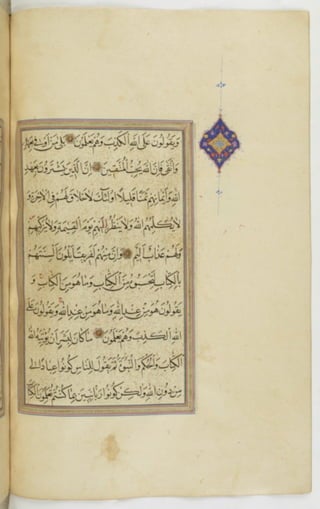 وَيَقُولُونَ عَلَى اللهِ الْكَذِبَ وَهُمْ يَعْلَمُونَ بَلَى مَنْ اَوْفَى بِعَهْدِهِ
وَاتَّقَى فَاِنَّ اللهَ يُحِبُّ الْمُتَّقِينَ اِنَّ الَّذِينَ يَشْتَرُونَ بِعَهْدِ
اللهِ وَاَيْمَانِهِمْ ثَمَنًا قَلِيلًا اُولٰئِكَ لَا خَلَاقَ لَهُمْ فِي الْاٰخِرَةِ وَ
لَا يُكَلِّمُهُمُ اللهُ وَلَا يَنْظُرُ اِلَيْهِمْ يَوْمَ الْقِيٰمَةِ وَلَا يُزَكِّيهِمْ
وَلَهُمْ عَذَابٌ اَلِيمٌ وَاِنَّ مِنْهُمْ لَفَرِيقًا يَلْوُونَ اَلْسِنَتَهُمْ
بِالْكِتَابِ لِتَحْسَبُوهُ مِنَ الْكِتَابِ وَمَا هُوَ مِنَ الْكِتَابِ وَ
يَقُولُونَ هُوَ مِنْ عِنْدِ اللهِ وَمَا هُوَ مِنْ عِنْدِ اللهِ وَيَقُولُونَ عَلَى
اللهِ الْكَذِبَ وَهُمْ يَعْلَمُونَ مَا كَانَ لِبَشَرٍ اَنْ يُؤْتِيَهُ اللهُ
الْكِتَابَ وَالْحُكْمَ وَالنُّبُوَّةَ ثُمَّ يَقُولَ لِلنَّاسِ كُونُوا عِبَادًا لِي
مِنْ دُونِ اللهِ وَلٰكِنْ كُونُوا رَبَّانِيِّينَ بِمَا كُنْتُمْ تُعَلِّمُونَ الْكِتَابَ